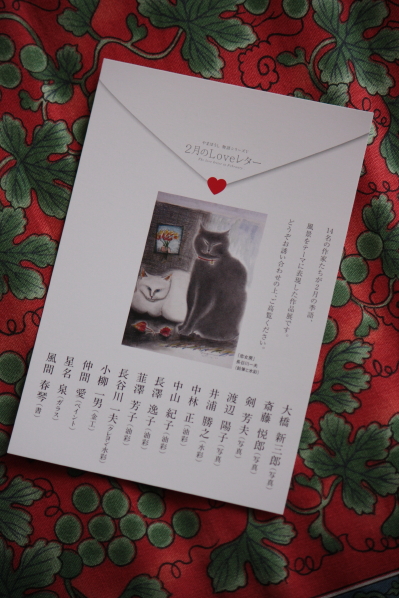 2月のLoveレター
14名の作家たちが2月の季語、
風景をテーマに表現した作品展です。
どうぞお誘い合わせの上、ご高覧ください。
大橋 新三郎(写真)
斎藤 悦郎(写真)
剣 芳夫(写真)
渡辺 陽子(写真)
井浦 勝之(水彩)
中林 正(油彩)
中山 紀子(油彩)
長澤 逸子(油彩)
韮澤 芳子(油彩)
長谷川 一夫(テンペラ・水彩)
小柳 一男(金工)
仲間 愛(ペイント)
星名 泉(ガラス)
風間 春琴(書)